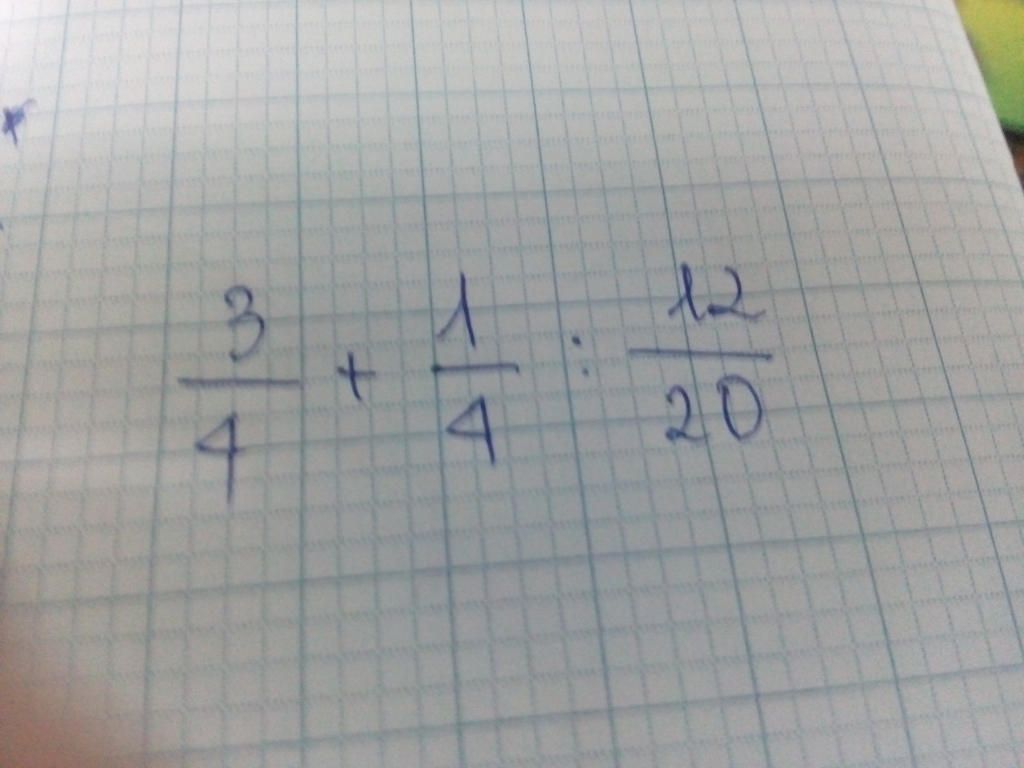 3/4 + 1/4 : 12/20